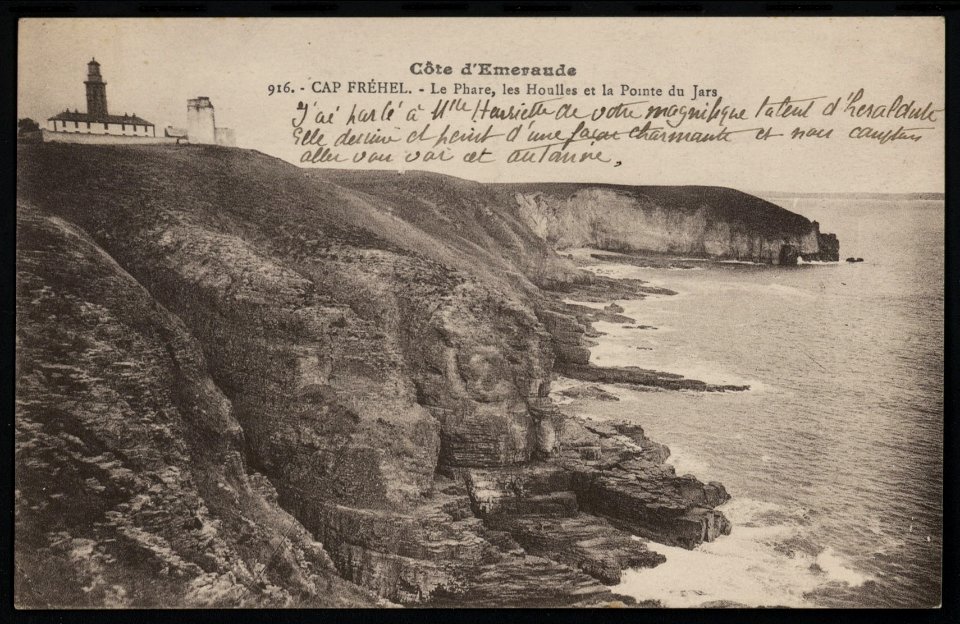 Côte d'Emeraude
916. - CAP FRÉHEL. - Le Phare, les Houlles et la Pointe du Jars
J'ai parlé à Mlle Henriette de votre magnifique talent d'heraldiste
Elle dessine et peint d'une façon charmante et nous comptons
aller vous voir cet automne.